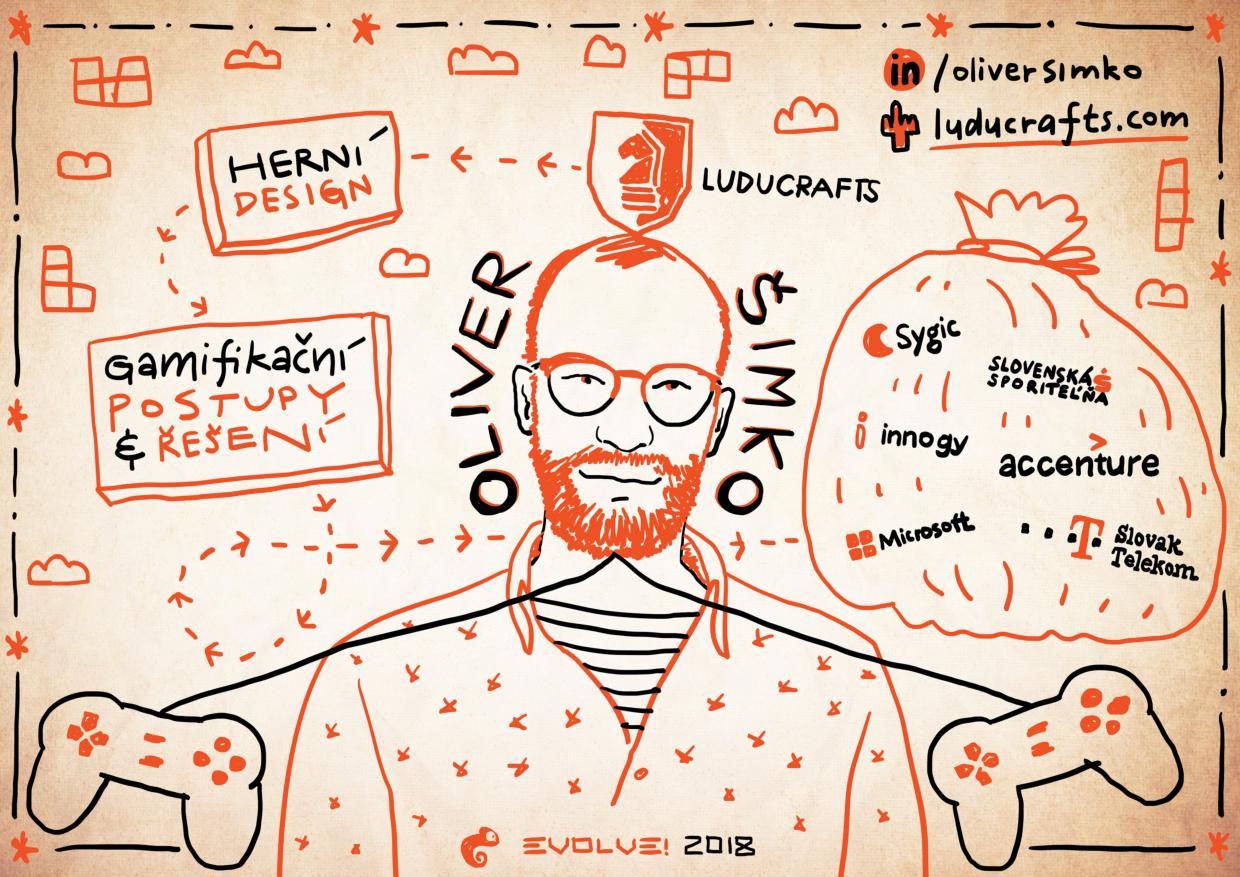 in /oliversimko
luducrafts.com
HERNÍ
DESIGN
LUDUCRAFTS
OLIVER
ŠIMKO
Gamifikační
POSTUPY
& ŘEŠENÍ
Sygic
SLOVENSKÁ
SPORITEĽŇA
innogy
>
accenture
Microsoft
T
Slovak
Telekom
EVOLVE! 2018